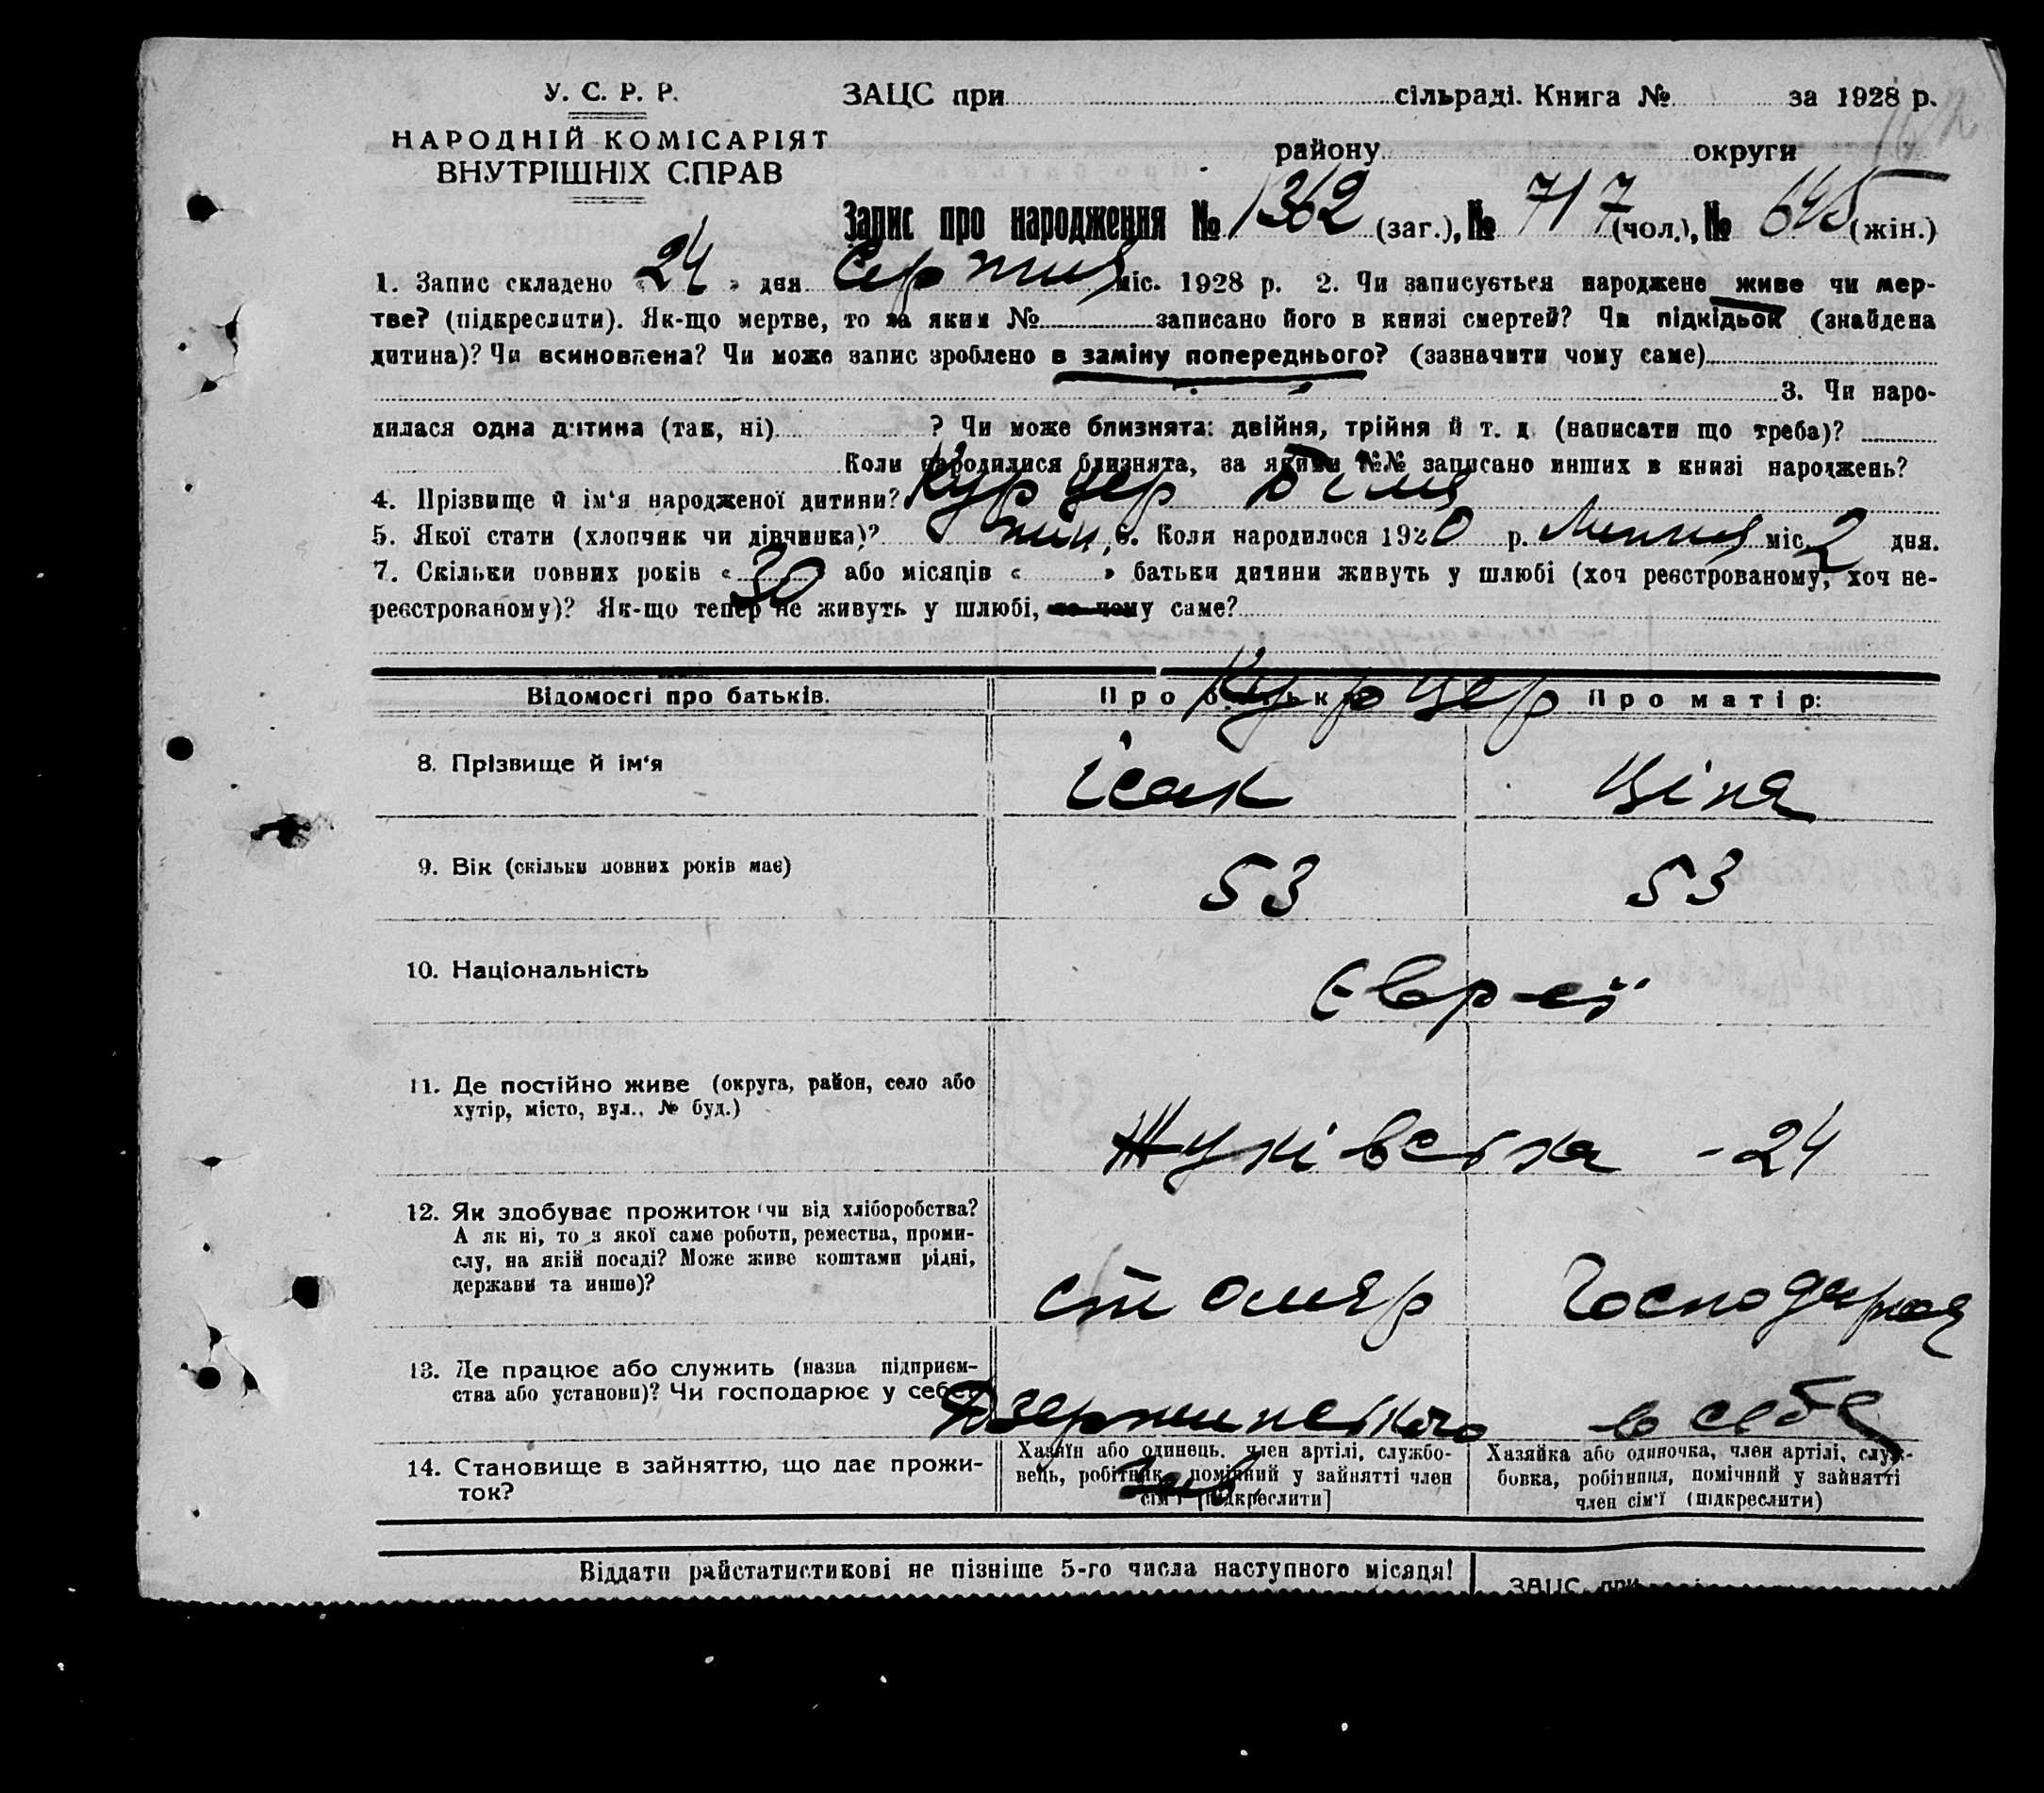 У. С. Р. Р.
НАРОДНІЙ КОМІСАРІЯТ
ВНУТРІШНІХ СПРАВ
ЗАЦС при сільраді. Книга № за 1928 р.
району округи
Запис про народження № 1362 (заг.), № 717 (чол.), № 645 (жін.)
1. Запис складено « 24 » дня Серпня міс. 1928 р. 2. Чи записується народжене живе чи мер-
тве? (підкреслити). Як-що мертве, то за яким № записано його в книзі смертей? Чи підкідьок (знайдена
дитина)? Чи всиновлена? Чи може запис зроблено в заміну попереднього? (зазначити чому саме)
3. Чи наро-
дилася одна дитина (так, ні) ? Чи може близнята: двійня, трійня й т. д. (написати що треба)?
Коли народилися близнята, за якими №№ записано инших в книзі народжень?
4. Прізвище й ім‘я народженої дитини? Курцер
5. Якої стати (хлопчик чи дівчинка)? жін. 6. Коли народилося 1920 р. Липня міс. 2 дня.
7. Скільки повних років « 30 » або місяців « » батьки дитини живуть у шлюбі (хоч реєстрованому, хоч не-
реєстрованому)? Як-що тепер не живуть у шлюбі, то чому саме?
Відомості про батьків. Про батька Про матір:
Курцер
8. Прізвище й ім‘я Ісак Ціпа
9. Вік (скільки повних років має) 53 53
10. Національність Євреї
11. Де постійно живе (округа, район, село або
хутір, місто, вул., № буд.)
Жуківська - 24
12. Як здобуває прожиток чи від хліборобства?
А як ні, то з якої саме роботи, ремества, проми-
слу, на якій посаді? Може живе коштами рідні,
держави та инше)?
столяр Господарка
13. Де працює або служить (назва підприєм-
ства або установи)? Чи господарює у себе?
Дзержинського в себе
14. Становище в зайняттю, що дає прожи-
ток?
Хазяїн або одинець, член артілі, службо-
вець, робітник, помічний у зайнятті член
сім‘ї [підкреслити]
Хазяйка або одиночка, член артілі, служ-
бовка, робітниця, помічний у зайнятті
член сім‘ї (підкреслити)
Віддати райстатистикові не пізніше 5-го числа наступного місяця!
ЗАЦС при